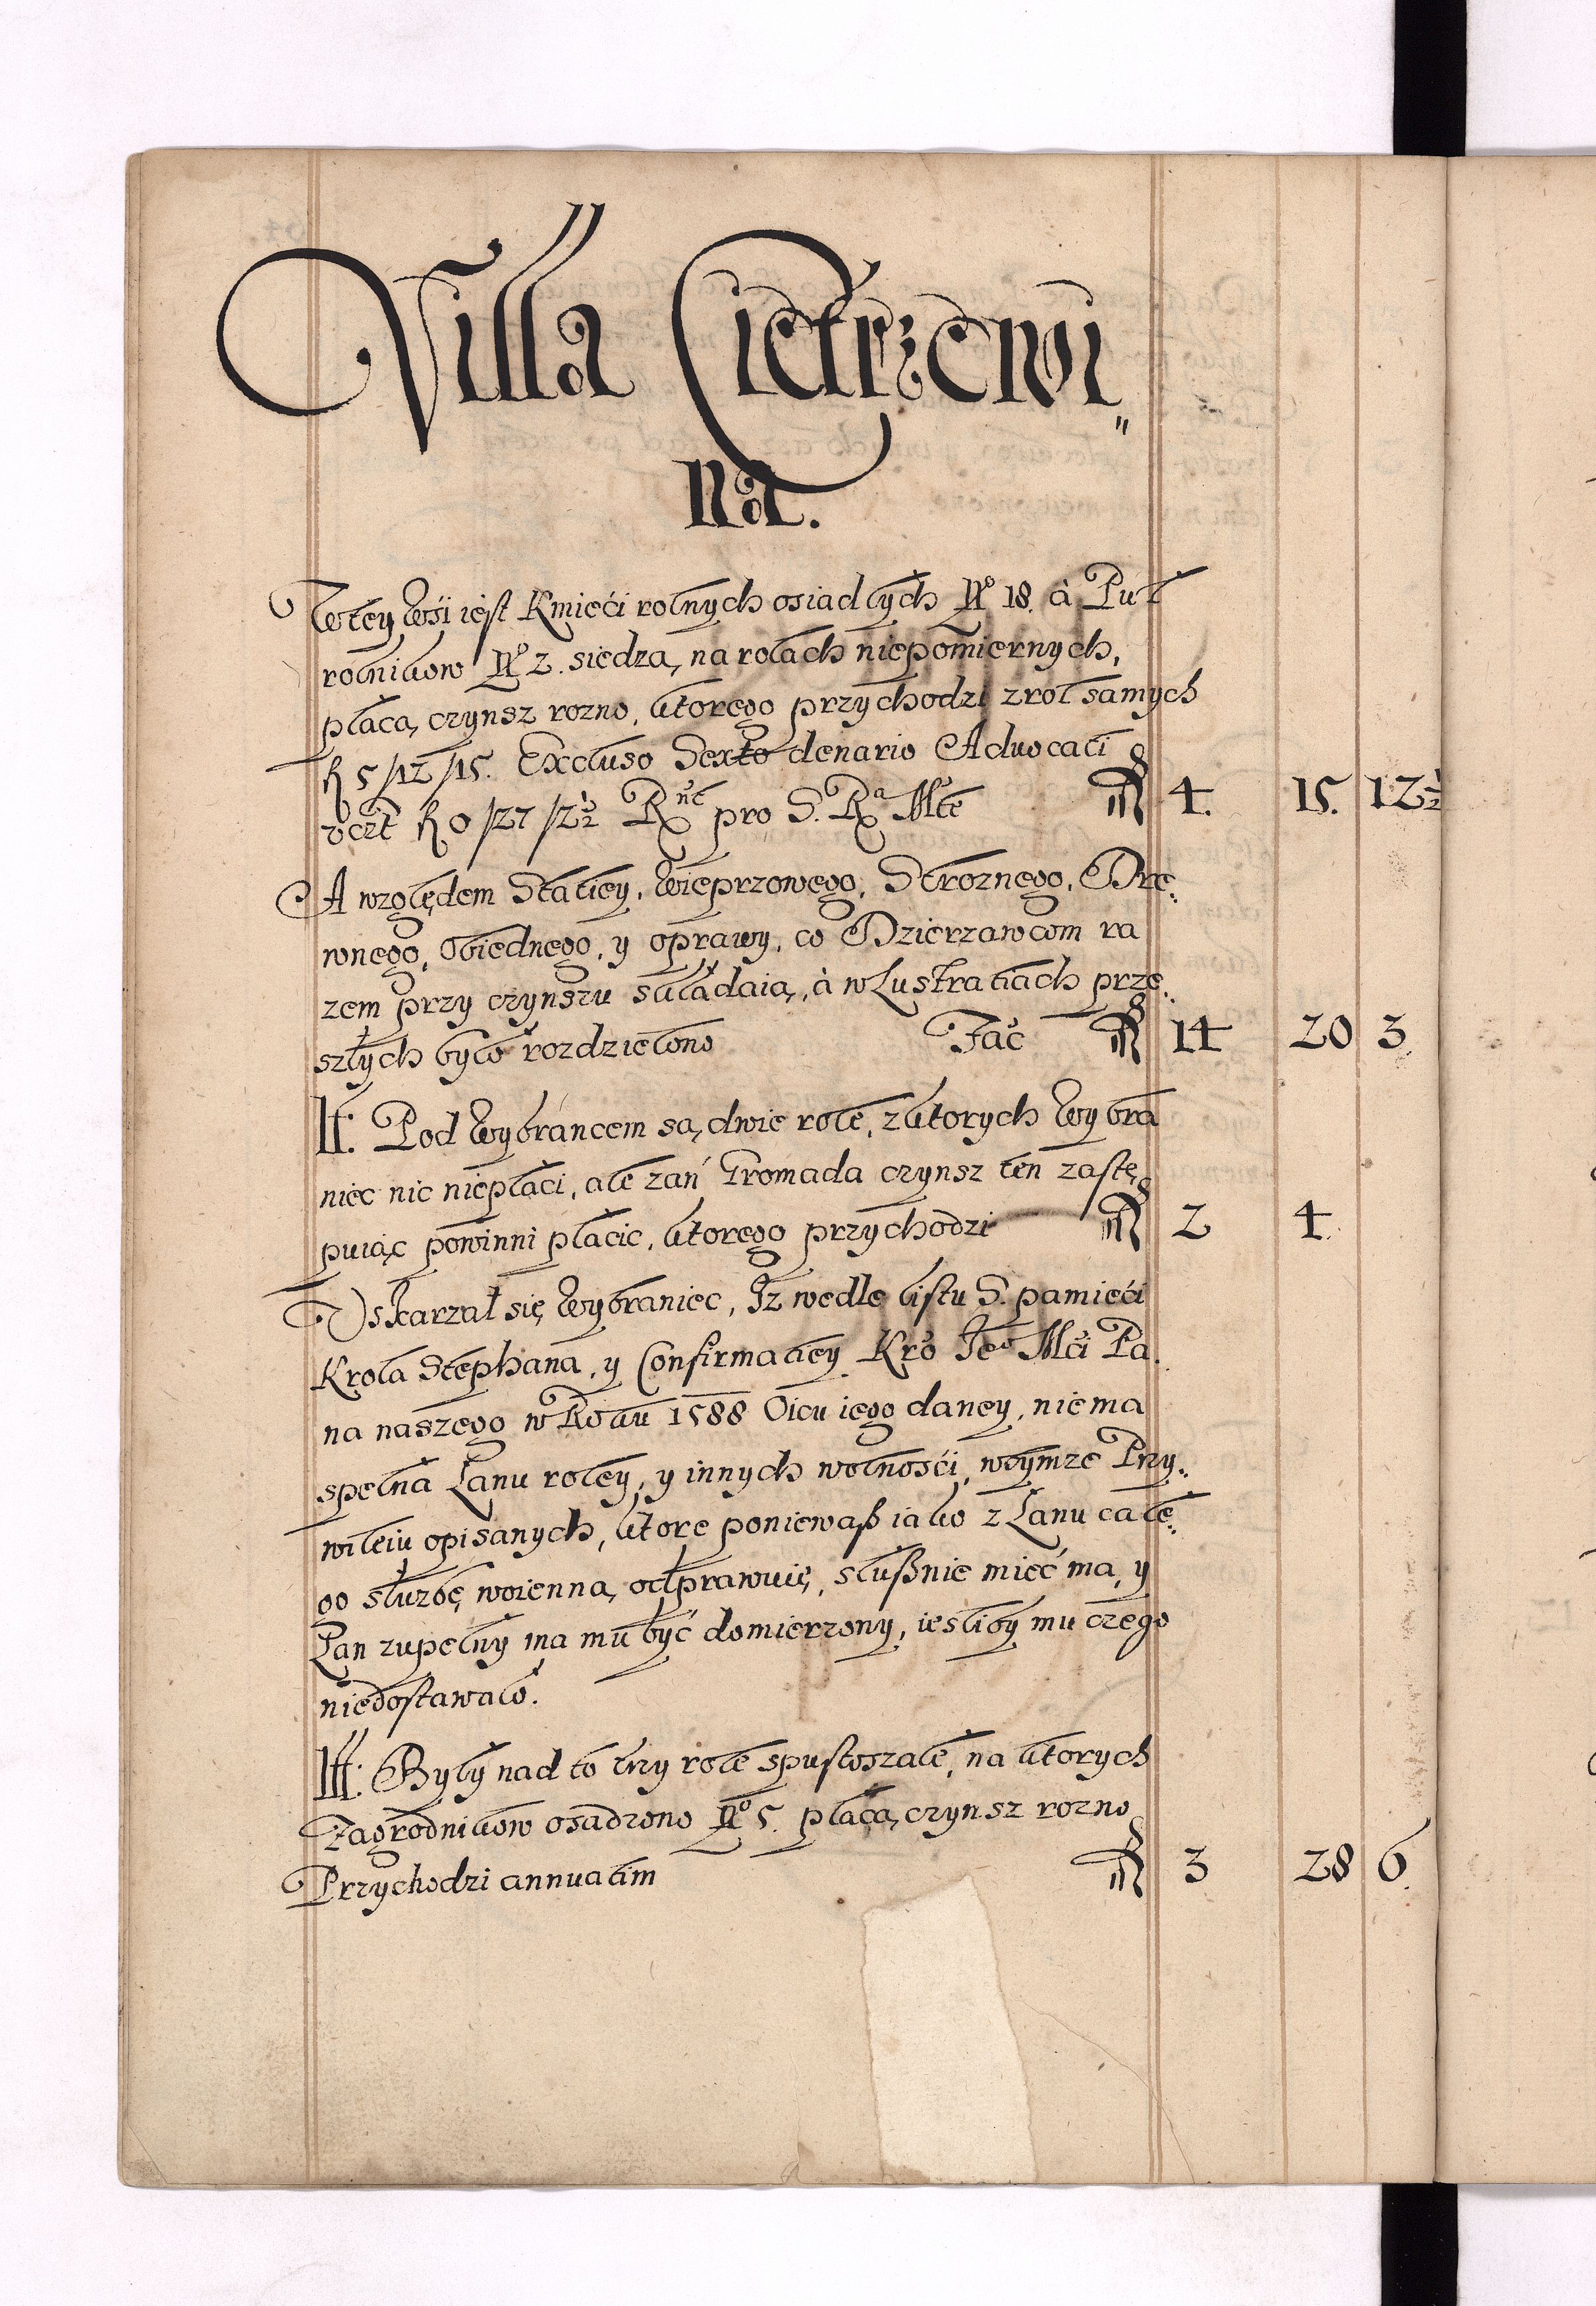 Villa Cietrzewi„
na.
W tey Wsi iest Kmieći rolnych osiadłych No 18. à Puł
rolnikow No 2. siedzą na rolach niepomiernych,
płacą czynsz rozno, ktorego przychodzi z rol samych
fl 5/12/15. Excluso Sexto denario Advocati
vert fl 0/27/2½ Rnt pro S. Ra Mte fl 4. 15. 12½
A względem Staciey, Wieprzowego, Stroznego, Drę„
wnego, Obiednego, y oprawy, co Dzierzawcom ra
zem przy czynszu składaią, à w Lustratiach prze„
szłych było rozdzielono Fac fl 14 20 3
It. Pod Wybrancem są dwie role, z ktorych Wybra
niec nic niepłaci, ale zań Gromada czynsz ten zastę
puiąc powinni płacic, ktorego przychodzi fl 2 4.
Uskarzał się Wybraniec, Iz wedle listu S. pamieći
Krola Stephana, y Confirmatiey Kro Jeo Mći Pa.
na naszego w Roku 1588 Oicu iego daney, nie ma
spełna Łanu roley, y innych wolnośći, w tymze Przy„
wileiu opisanych, ktore poniewaß iako z Łanu całe„
go słuzbę woienną odprawuię, slußnie mieć ma, y
Łan zupełny ma mu być domierzony, iesliby mu czego
niedostawało.
It: Były nad to trzy role spustoszałe, na ktorych
Zagrodnikow osadzono No 5. płacą czynsz rozno
Przychodzi annuatim fl 3 28 6.